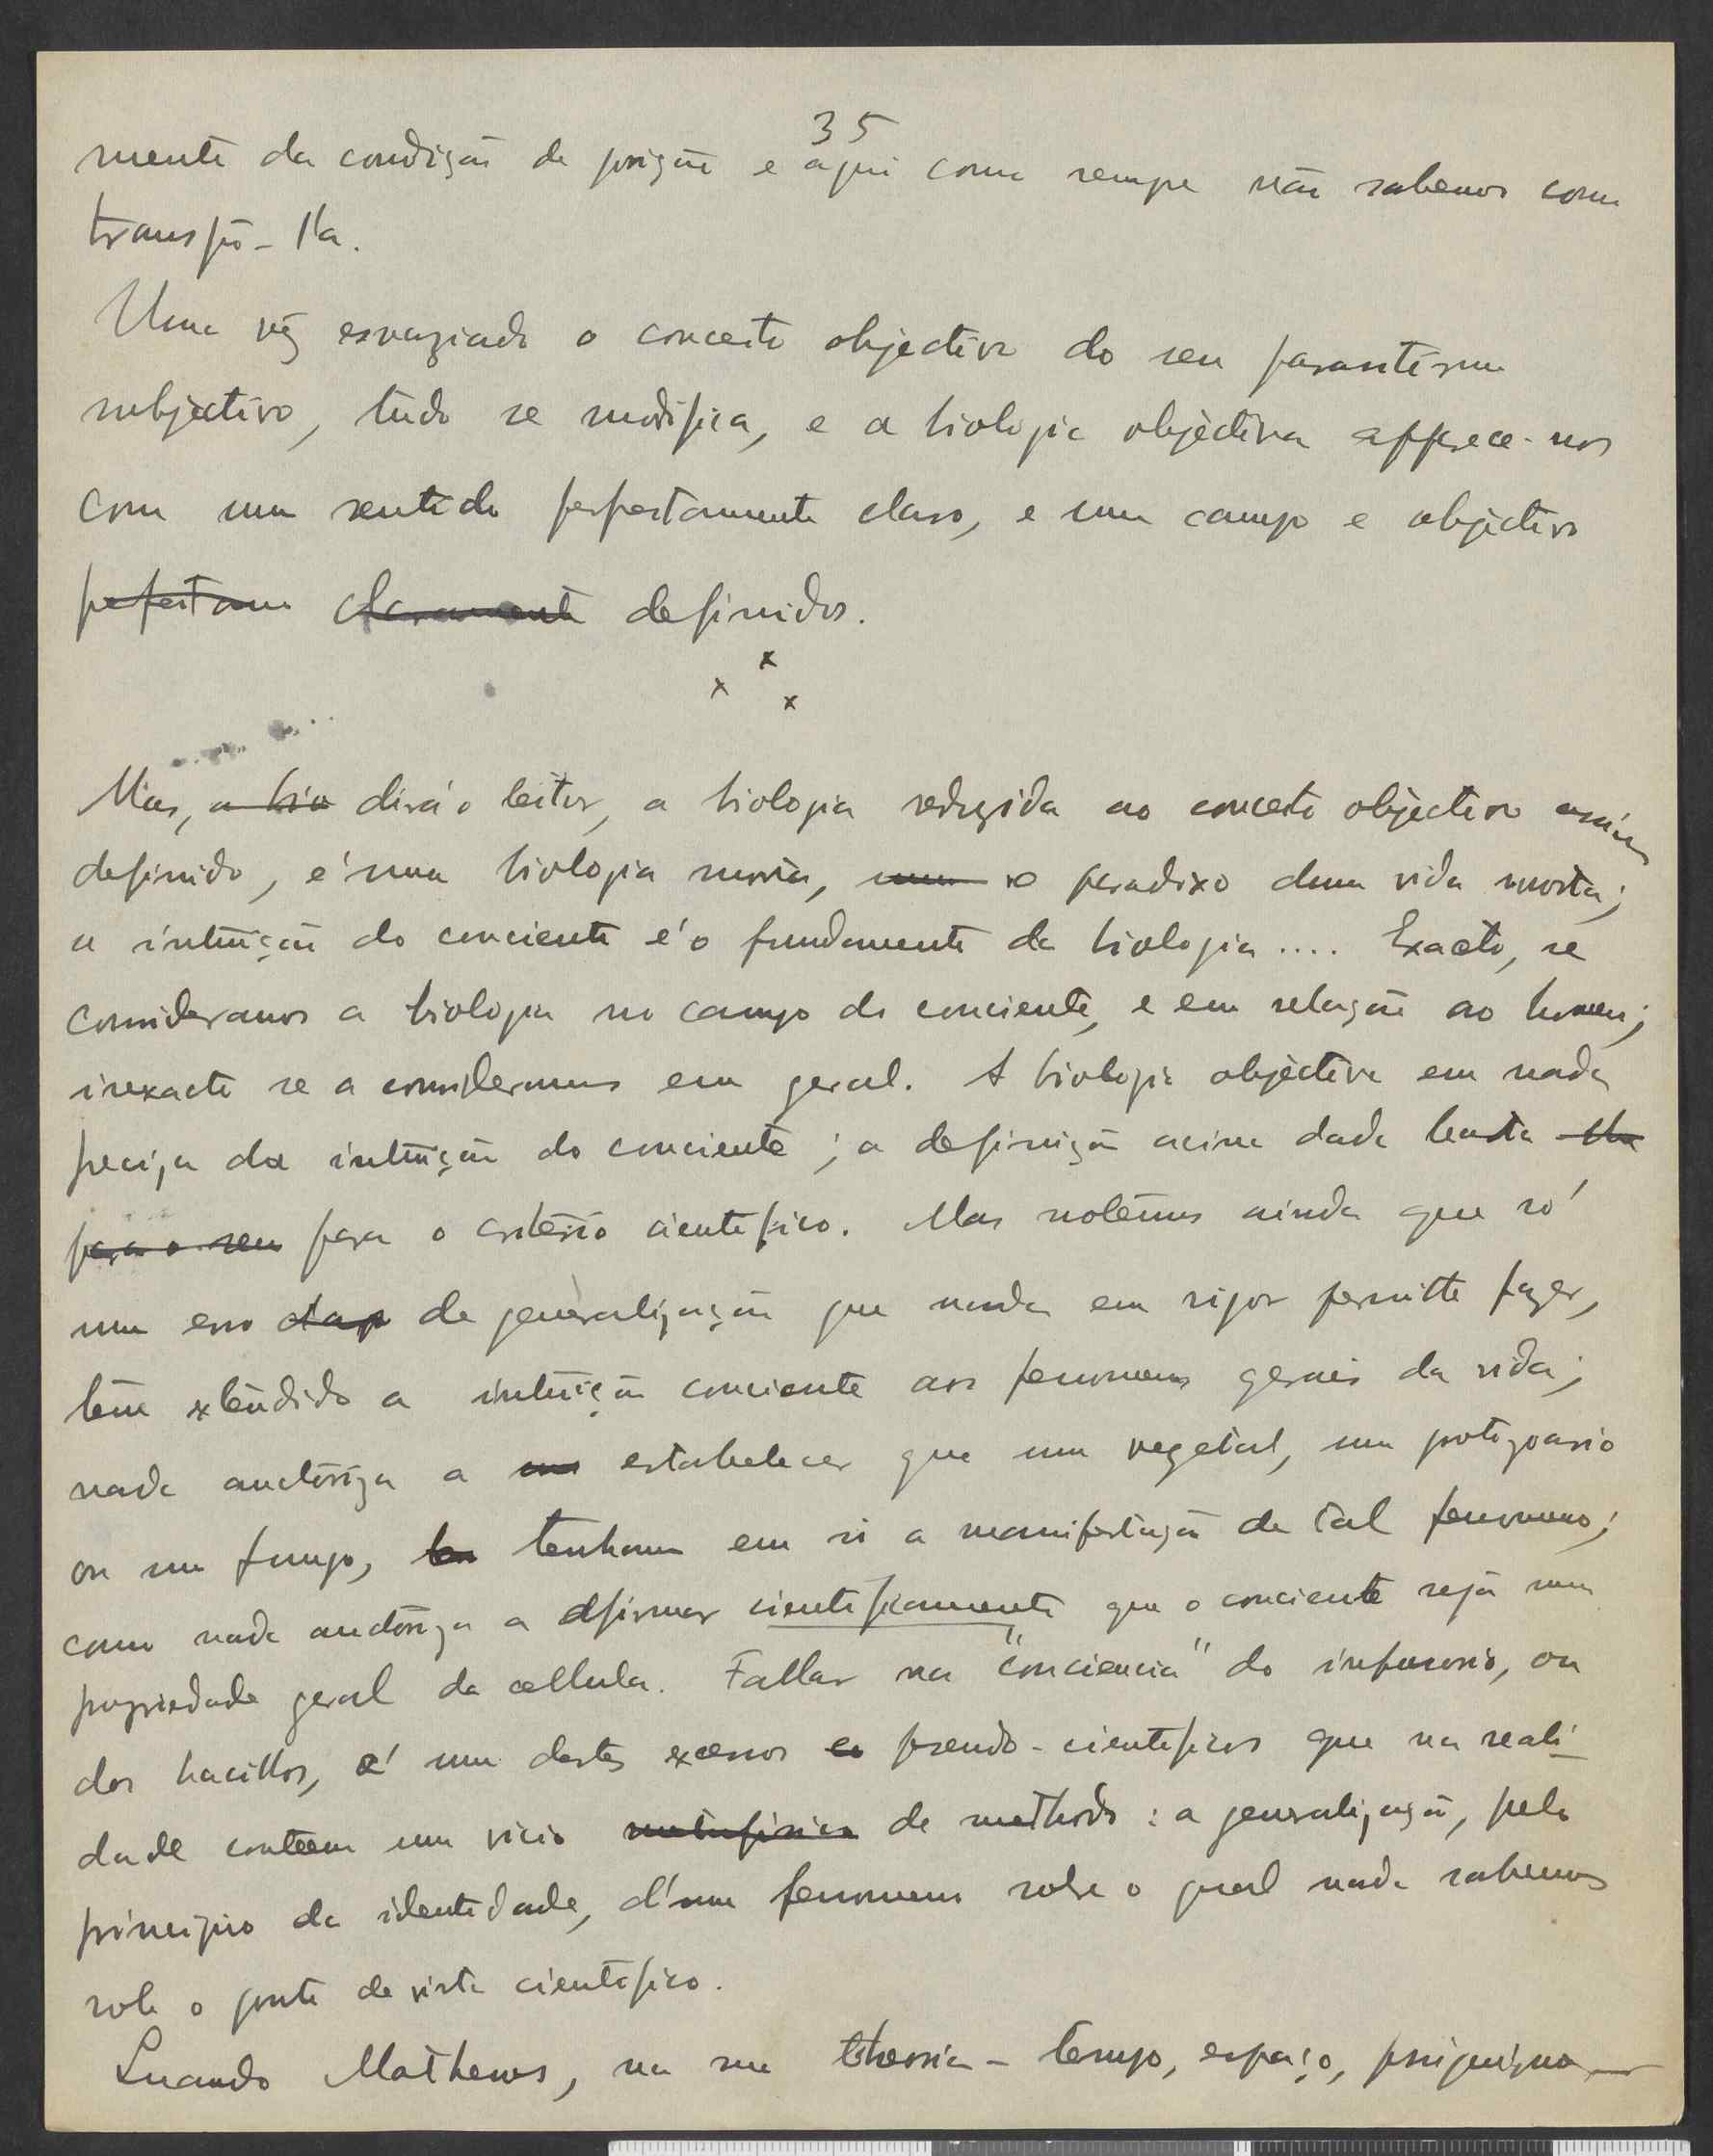 35
mente da condição de posição e aqui como sempre não sabemos como
transpô-l'a.
Uma vêz esvaziado o conceito objectivo do seu parasitismo
subjectivo, tudo se modifica, e a biologia objectiva apparece-nos
com um sentido perfeitamente claro, e um campo e objectivo
perfeitam claramente definidos.
x x x
Mas, a bio dirá o leitor, a biologia reduzida ao conceito objectivo assim
definido, é uma biologia morta, um o paradoxo duma vida morta;
a intuição do conciente é o fundamento da biologia .... Exacto, se
consideramos a biologia no campo do conciente, e em relação ao homem;
inexacto se a consideramos em geral. A biologia objectiva em nada
precisa da intuição do conciente; a definição acima dada basta
para o seu para o critério cientifico. Mas notêmos ainda que só
um erro de generalização que nada em rigor permitte fazer,
tem extendido a intuição conciente aos fenomenos geraes da vida;
nada auctoriza a estabelecer que um vegetal, um protozoario
ou um fungo, tenham em si a manifestação de tal fenomeno;
como nada auctoriza a afirmar cientificamente que o conciente seja uma
propriedade geral da cellula. Fallar na "conciencia" do infusorio, ou
dos bacillos, é um destes excessos pseudo-cientificos que na reali-
dade conteem um vicio metafisico de methodo: a generalização, pelo
principio da identidade, d'um fenomeno sobre o qual nada sabemos
sob o ponto de vista cientifico.
Quando Mathews, na sua theoria - tempo, espaço, psiquismo -